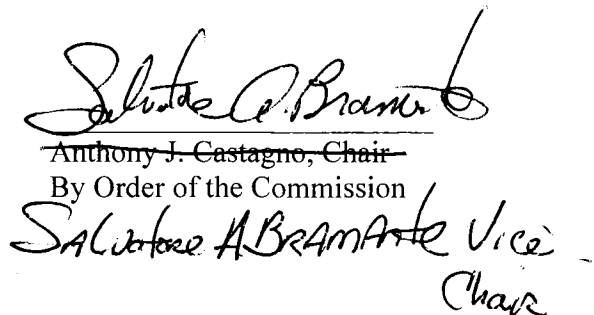 Salvatore A. Bramante
Anthony J. Castagno, Chair
By Order of the Commission
SALVatore A BRAMANte Vice
Chair